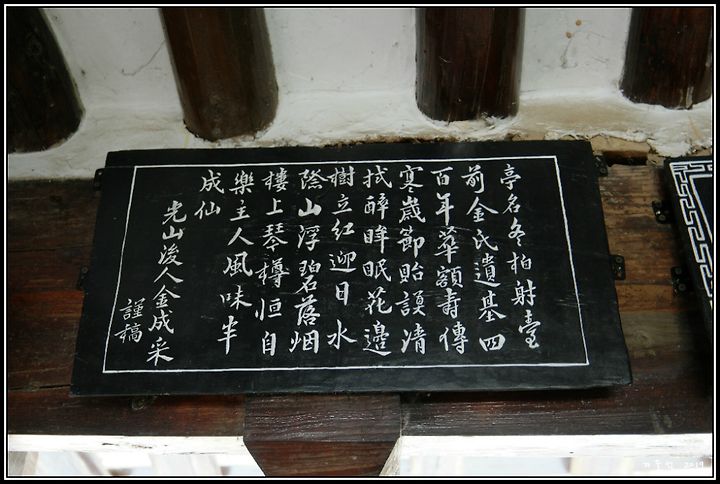 亭名冬柏射臺
前金氏遺基四
百年華額壽傳
寒歲節貽謨清
拭醉眸眠花邊
樹立紅迎日水
際山浮碧落烟
樓上琴樽恒自
樂主人風味半
成仙
光山後人金成采
謹稿